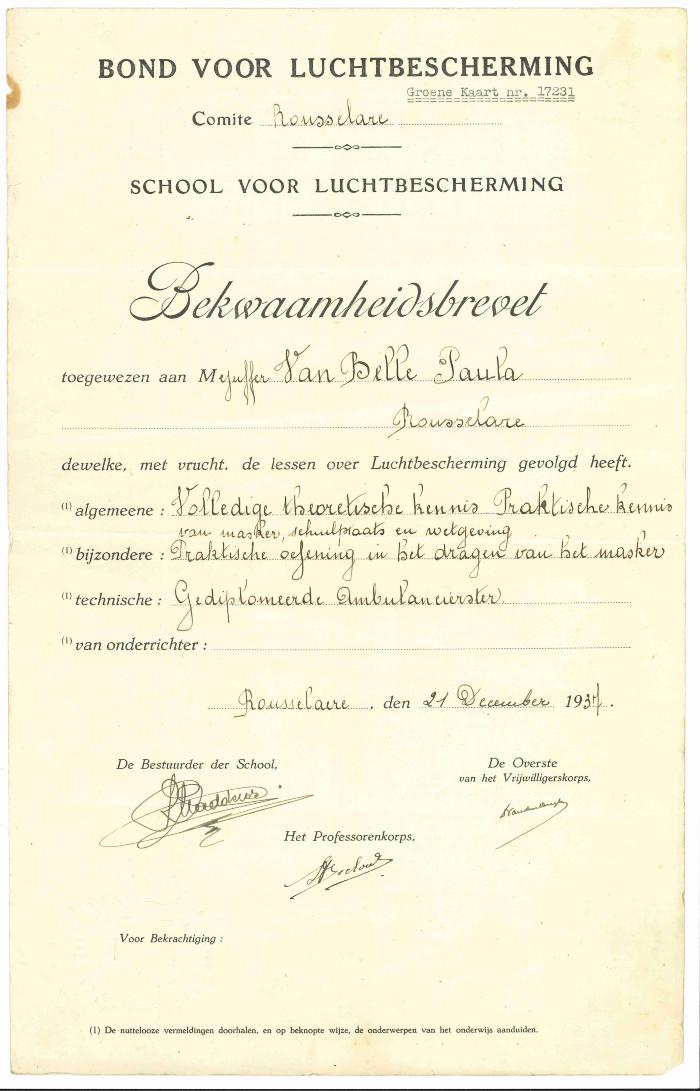 BOND VOOR LUCHTBESCHERMING
Groene Kaart nr. 17231
Comite Rousselare
SCHOOL VOOR LUCHTBESCHERMING
Bekwaamheidsbrevet
toegewezen aan Mejuffer Van Belle Paula
Rousselare
dewelke, met vrucht. de lessen over Luchtbescherming gevolgd heeft.
(1) algemeene : Volledige theoretische kennis Praktische kennis
van masker, schuilplaats en wetgeving
(1) bijzondere : Praktische oefening in het dragen van het masker
(1) technische : Gediplomeerde Ambulancierster
(1) van onderrichter :
Rousselaere, den 21 December 1937.
De Bestuurder der School,
De Overste
van het Vrijwilligerskorps,
Het Professorenkorps,
Voor Bekrachtiging :
(1) De nuttelooze vermeldingen doorhalen, en op beknopte wijze, de onderwerpen van het onderwijs aanduiden.